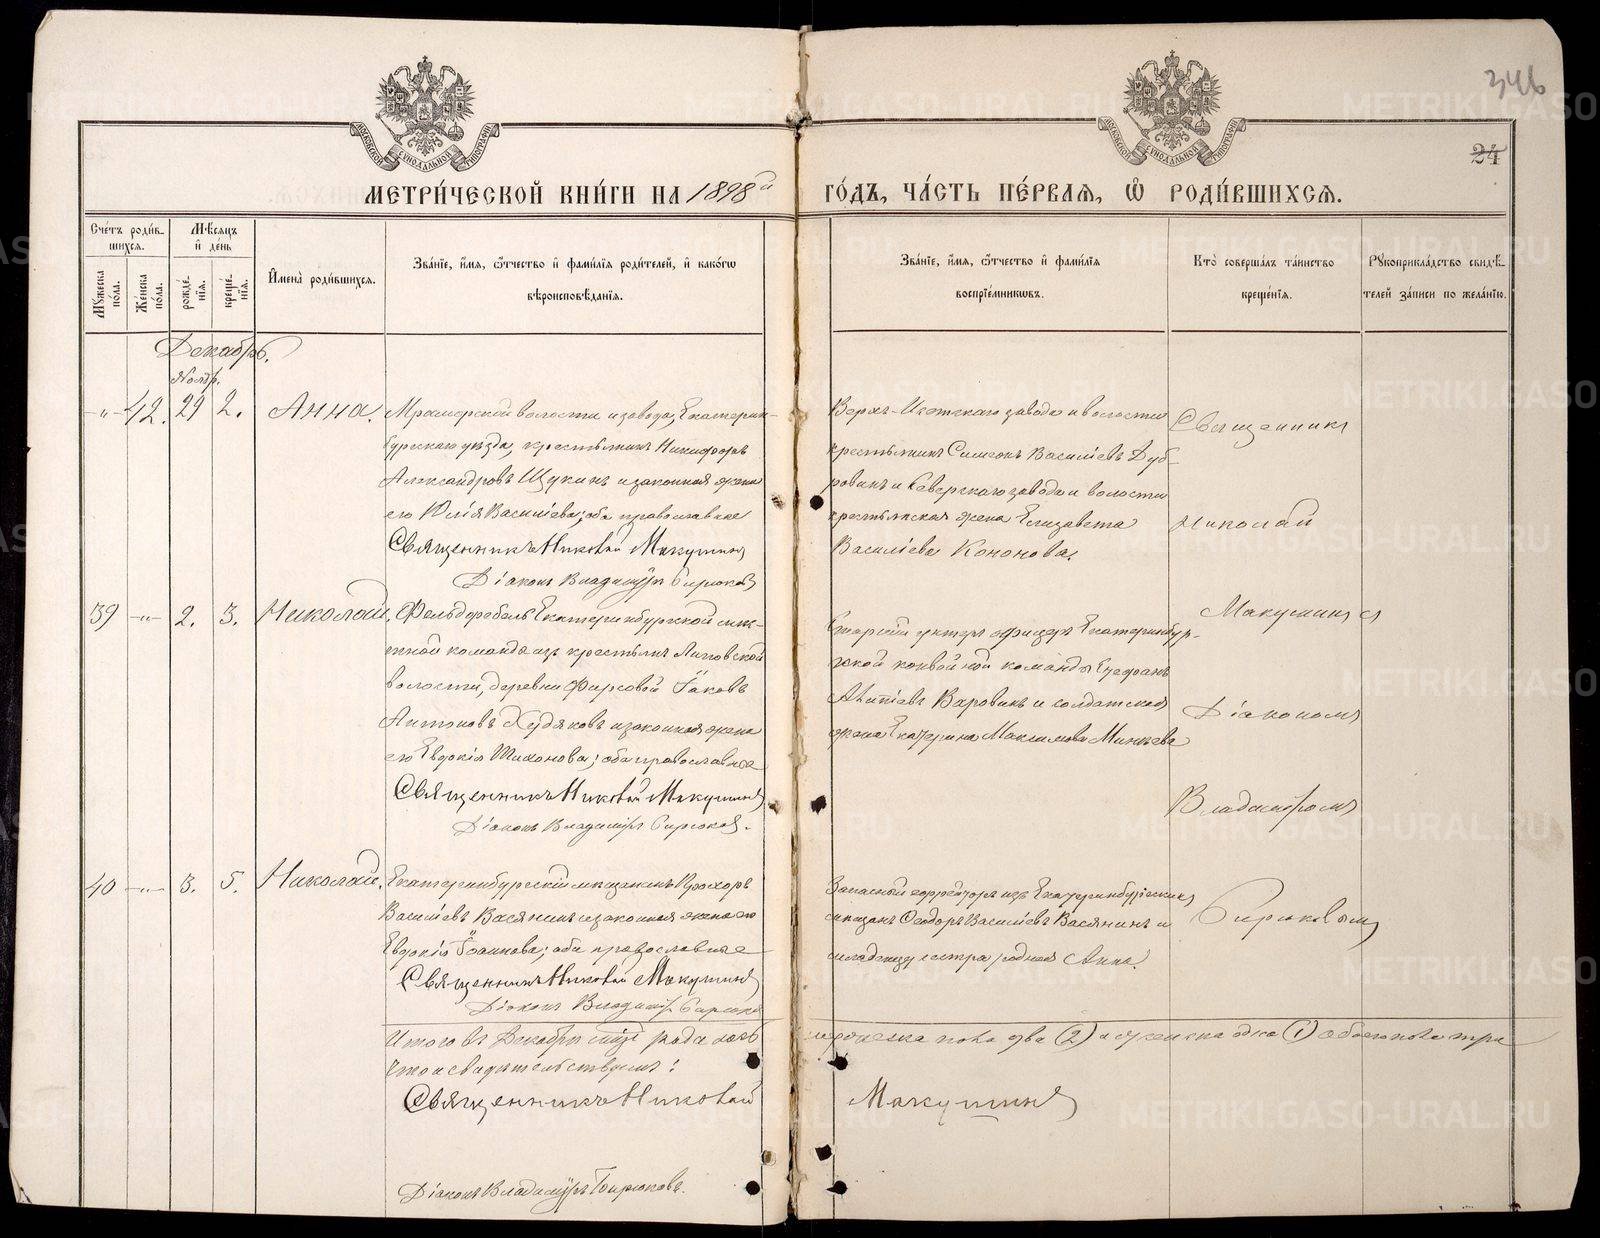 346
24
МЕТРИ́ЧЕСКОЙ КНИ́ГИ НА 1898й ГО́ДЪ, ЧА́СТЬ ПЕ́РВАЯ, Ѽ РОДИ́ВШИХСЯ.
Сче́тъ роди́в-
шихся.
Мꙋ́жеска по́ла.
Же́нска по́ла.
Мѣ́сяцъ и҆ де́нь
рожде́-
нїя.
креще́-
нїя.
И҆мена̀ роди́вшихся.
Зва́нїе, и҆́мя, ѻ҆́тчество и҆ фами́лїя роди́телей, и҆ како́гѡ
вѣроисповѣ́данїя.
Зва́нїе, и҆́мя, ѻ҆́тчество и҆ фами́лїя
воспрїе́мникѡвъ.
Кто̀ соверша́лъ та́инство
креще́нїя.
Рꙋкоприкла́дство свидѣ́-
телей за́писи по жела́нїю.
Декабрь.
Ноябр.
-"- 42. 29 2. Анна.
Мраморской волости и завода, Екатерин-
бургскаго уѣзда, крестьянинъ Никифоръ
Александровъ Щукинъ и законная жена
его Юлія Васильева; оба православные
Священникъ Николай Макушинъ
Діаконъ Владиміръ Бирюковъ
Верхъ-Исетскаго завода и волости
крестьянинъ Симеонъ Васильевъ Дуб-
ровинъ и Сѣверскаго завода и волости
крестьянская жена Елизавета
Васильева Кононова.
Священникъ
Николай
Макушинъ съ
Діакономъ
Владиміромъ
Бирюковымъ
39 -"- 2. 3. Николай.
Фельдфебель Екатеринбургской мѣс-
тной команды изъ крестьянъ
волости, деревни Фирсовой Іаковъ
Антоновъ Худяковъ и законная жена
его Евдокія Тихонова; оба православные
Священникъ Николай Макушинъ
Діаконъ Владиміръ Бирюковъ.
Старшій унтеръ офицеръ Екатеринбур-
гской конвойной команды Стефанъ
Варовинъ и солдатская
жена Екатерина Максимова Минѣева
40 -"- 3. 5. Николай.
Екатеринбургскій мѣщанинъ Прохоръ
Васильевъ Васянинъ и законная жена его
Евдокія Іоаннова; оба православные
Священникъ Николай Макушинъ
Діаконъ Владиміръ Бирюковъ
Запасный ефрейторъ изъ Екатеринбургскихъ
мѣщанъ Ѳеодоръ Васильевъ Васянинъ и
младенцу сестра родная Анна.
Итого въ Декабрѣ мцѣ родилось мужеска пола два (2) а женска одна (1) обоего пола три
что и свидѣтельствуемъ:
Священникъ Николай Макушинъ
Діаконъ Владиміръ Бирюковъ.
METRIKI.GASO-URAL.RU